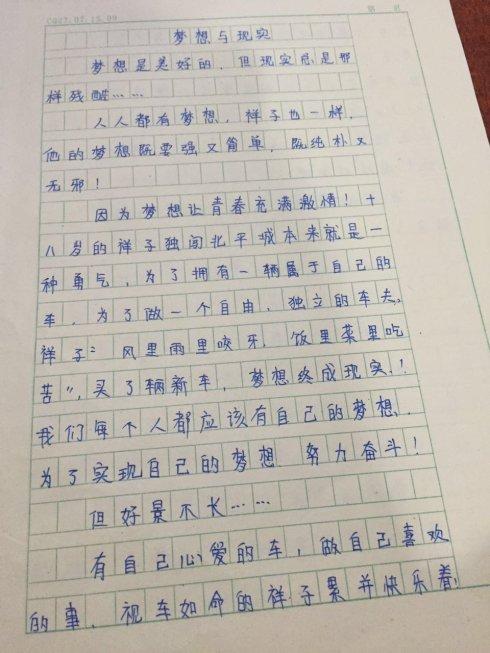 梦想与现实
梦想是美好的，但现实总是那
样残酷……
人人都有梦想，祥子也一样，
他的梦想既要强又简单，既纯朴又
无邪！
因为梦想让青春充满激情！十
八岁的祥子独闯北平城本来就是一
种勇气，为了拥有一辆属于自己的
车，为了做一个自由、独立的车夫，
祥子“风里雨里咬牙，饭里菜里吃
苦”，买了辆新车，梦想终成现实！
我们每个人都应该有自己的梦想，
为了实现自己的梦想 努力奋斗！
但好景不长……
有自己心爱的车，做自己喜欢
的事，视车如命的祥子累并快乐着，